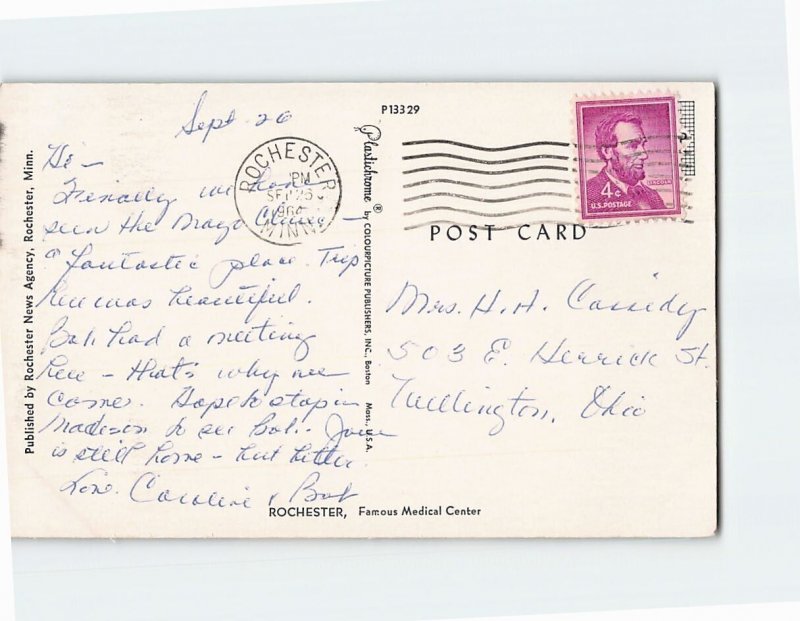 Sept 26
P13329
Hi -
Finally we have
seen the Mayo Clinic -
a fantastic place. Trip
here was beautiful.
Bob had a meeting
here - that's why we
came. Hope to stop in
Madison to see Bob. Jane
is still home - but better.
Love. Caroline & Bob
ROCHESTER
PM
SEP 26
MINN.
Published by Rochester News Agency, Rochester, Minn.
Plastichrome ® by COLOURPICTURE PUBLISHERS, INC., Boston Mass., U.S.A.
LINCOLN
4¢
U.S. POSTAGE
POST CARD
Mrs. H. A. Cassidy
503 E. Herrick St.
Wellington, Ohio
ROCHESTER, Famous Medical Center